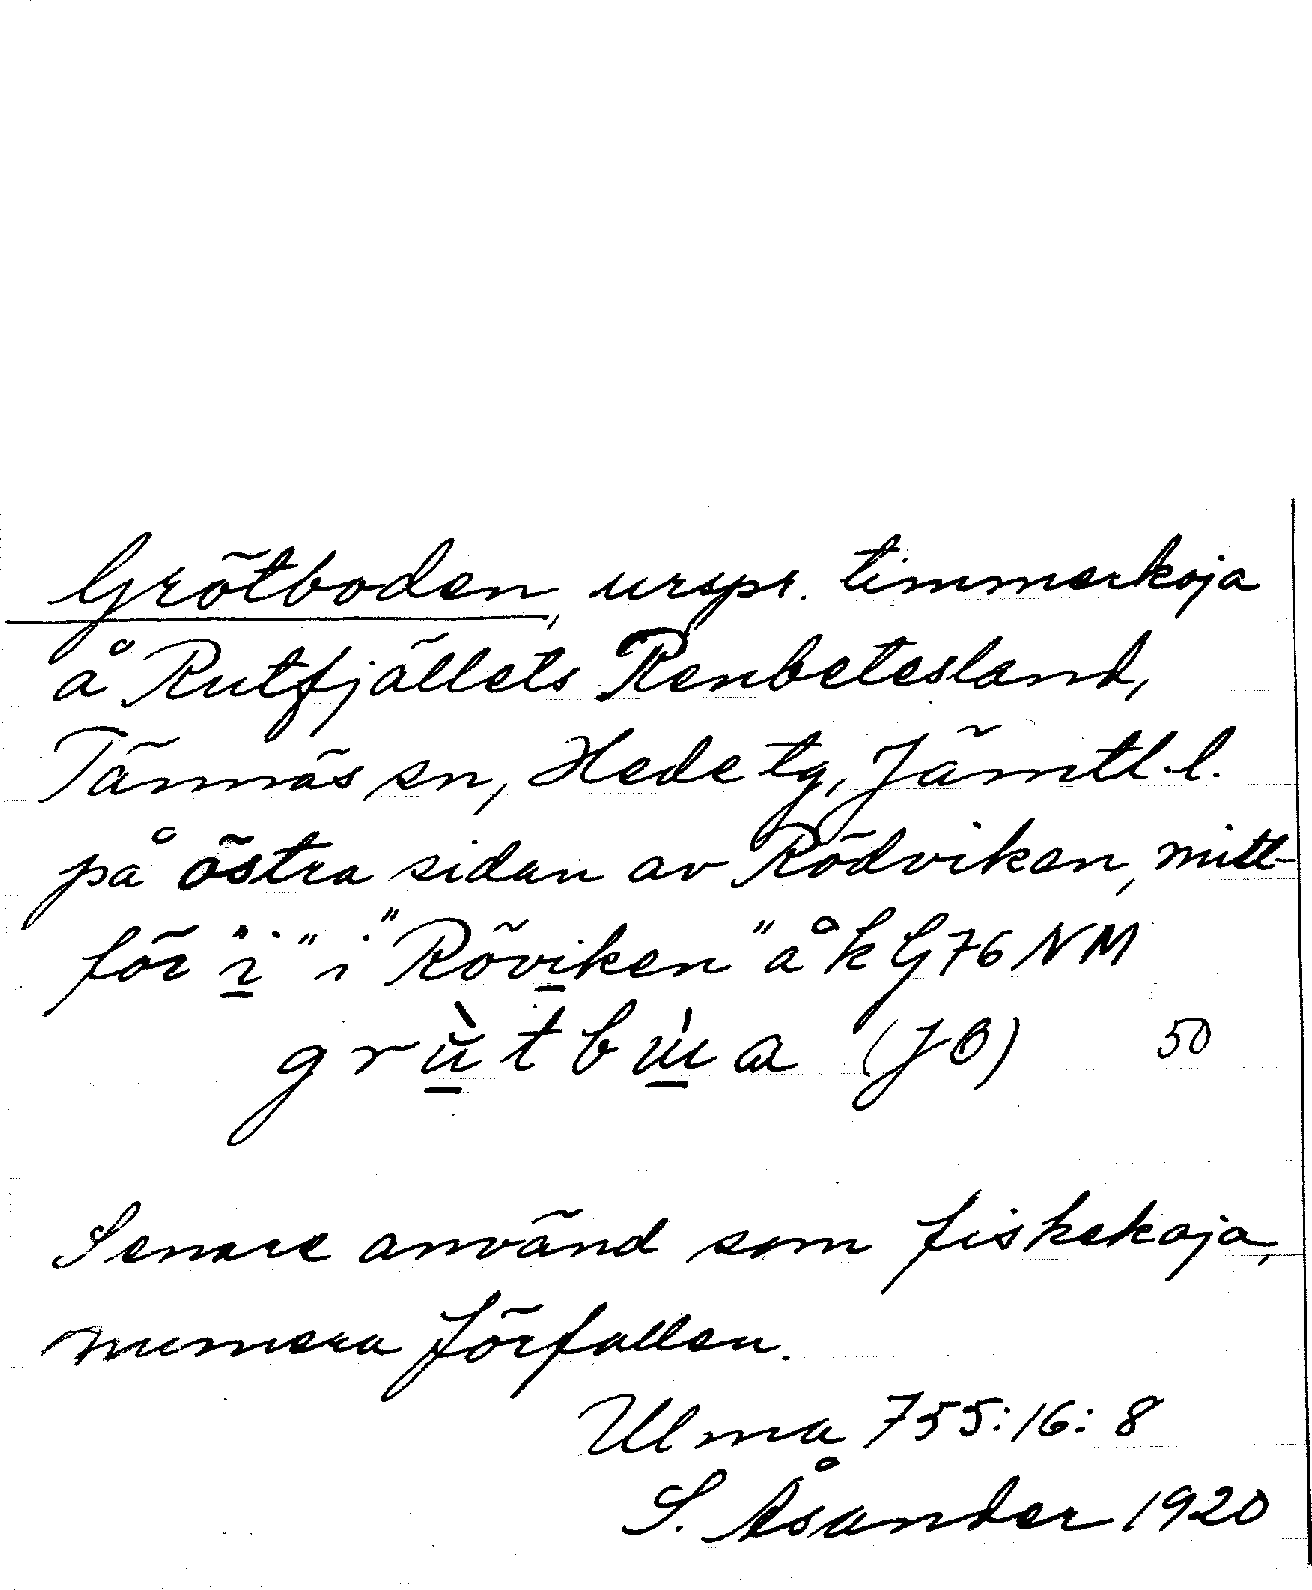 Grötboden, urspr. timmerkoja
å Rutfjällets Renbetesland,
Tännäs sn, Hede tg, Jämtl. l.
på östra sidan av Rödviken, mitt-
för "i" i "Röviken" å k G 76 NM
grùtbùɯa (JÖ) 50
Senare använd som fiskekoja,
numera förfallen.
Ulma 755:16:8
S. Åsander 1920